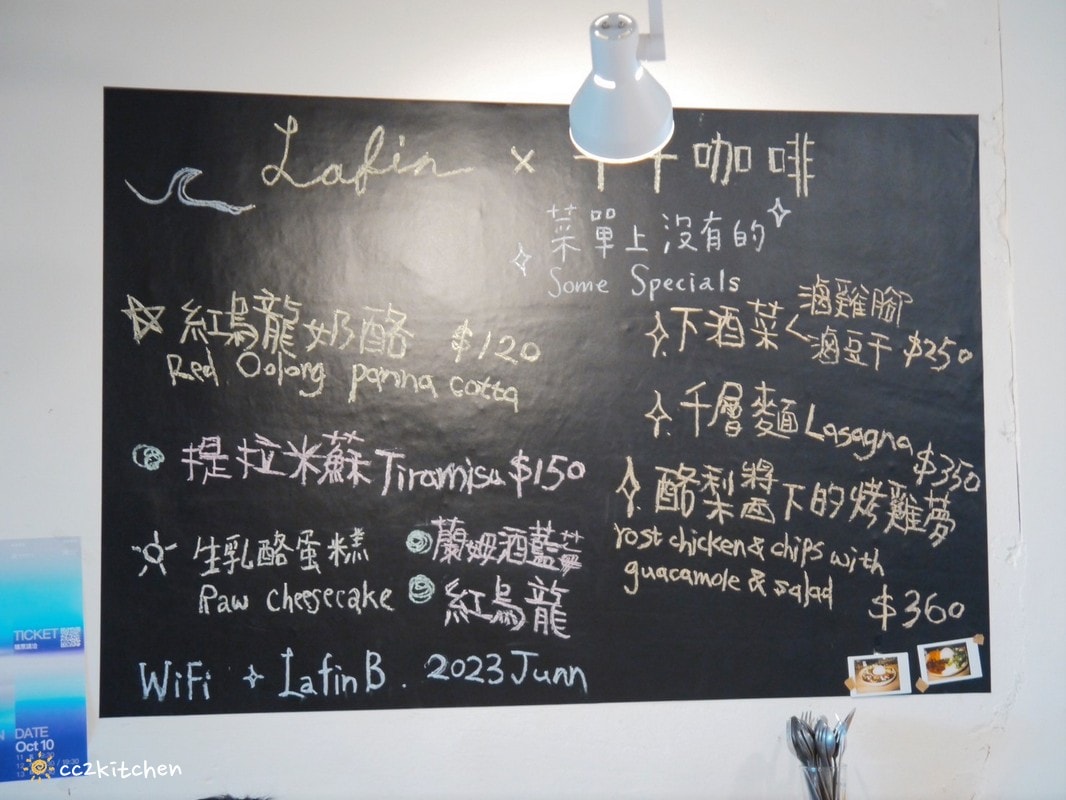 Lafin x 千千咖啡
菜單上沒有的
Some Specials
紅烏龍奶酪 $120
Red Oolong panna cotta
提拉米蘇 Tiramisu $150
生乳酪蛋糕
Raw cheesecake
蘭姆酒藍莓
紅烏龍
WiFi LafinB. 2023Junn
滷雞腳
下酒菜< 滷豆干 $250
千層麵 Lasagna $350
酪梨將
下的烤雞夢
rost chicken & chips with
guacamole & salad
$360
TICKET
DATE
Oct 10
cc2kitchen